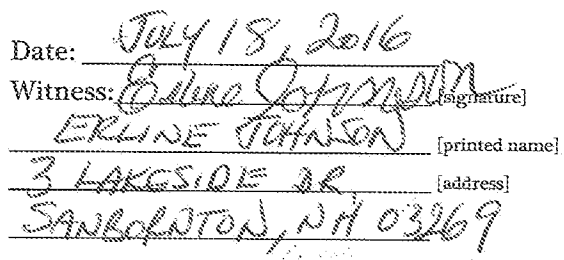 Date: JULY 18, 2016
Witness: [signature]
ERLINE JOHNSON [printed name]
3 LAKESIDE DR [address]
SANBORNTON, NH 03269